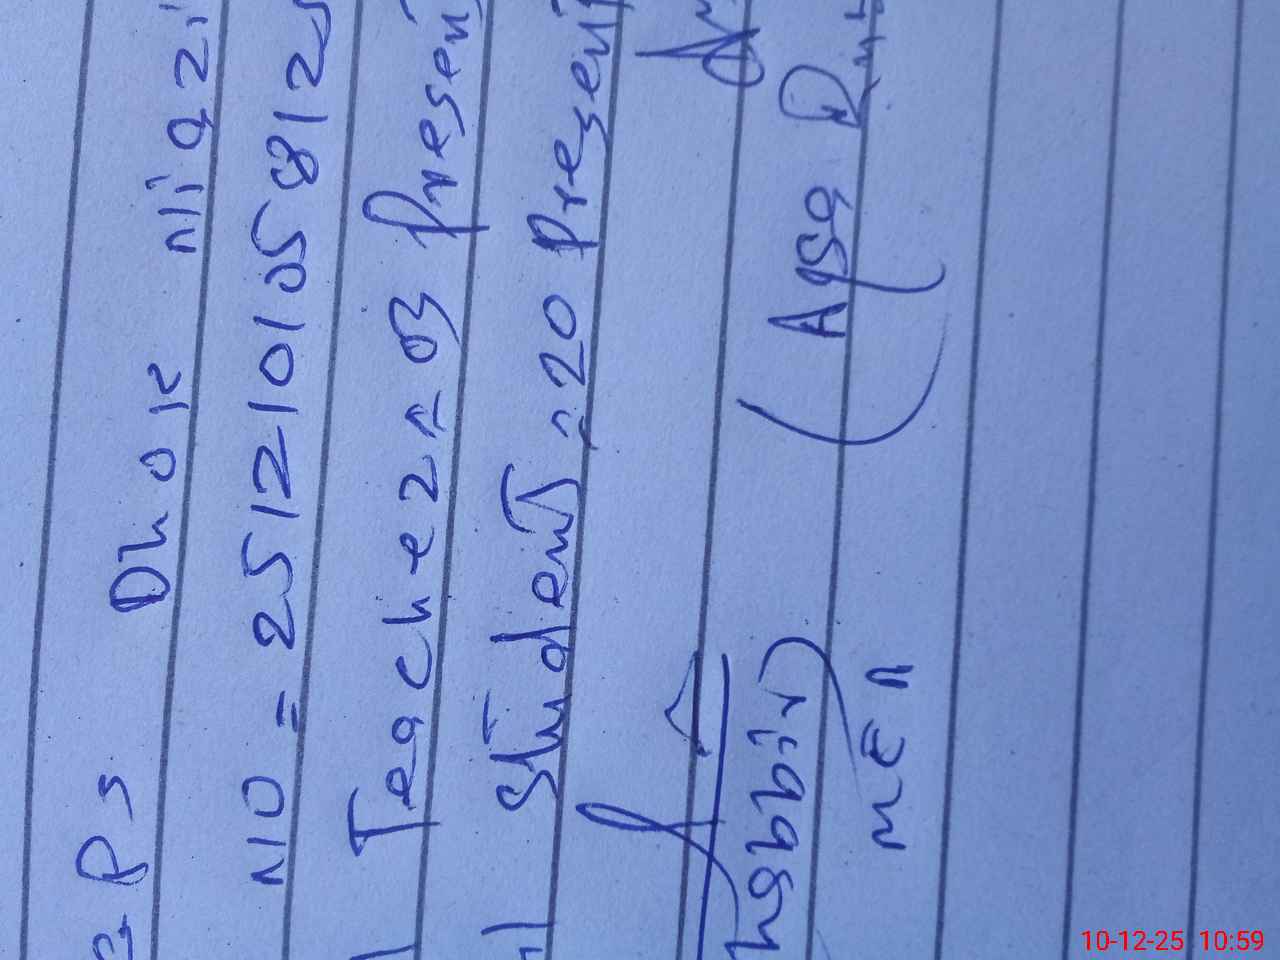 = Ps Dhok niazi
NO = 251210105812
Teachez = 03 Presen
Student = 20 Present
habbir)
(Aqsa
MEA
10-12-25 10:59